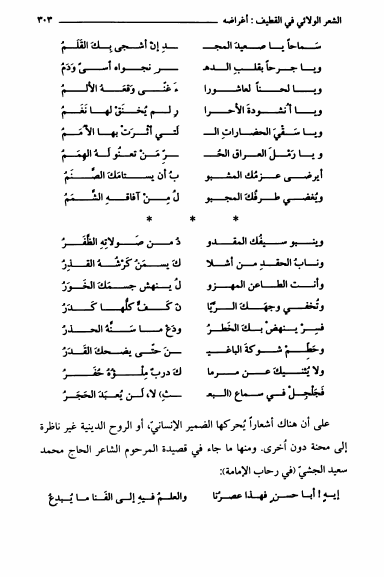 الشعر الولائي في القطيف : أغراضه ٣٠٣
سماحاً يا صعيد المجـ ـدِ إنْ أشجى بكَ القلَمُ
ويا جرحاً بقلبِ الدهـ ـرِ نجواه أسىً ودَمُ
ويا لحناً لعاشورا ءَ غنّى وقعَهُ الألَمُ
ويا أنشودةَ الأحرا رِ لم يُخنَقْ لها نَغَمُ
ويا سَقْيَ الحضاراتِ الـ ـلتي أثْرَتْ بها الأمَمُ
ويا رَمْلَ العراقِ الحُـ ـرِّ مَنْ تعنُو لَهُ الهِمَمُ
أيرضى عزمُكَ المشبو بُ أن يستامَكَ الصنَمُ
ويُغضي طرفُكَ المجبو لُ مِنْ آفاقِهِ الشَّمَمُ
* * *
وينبو سيفُكَ المقدو دُ من صَولاتِهِ الظَّفَرُ
ونابُ الحقدِ من أشلا كَ يسمَنُ كَرْشُهُ القذِرُ
وأنت الطاعن المهزو لُ ينهش جسمَكَ الخَوَرُ
وتُخفي وجهَكَ الريّا نَ كفٌّ كلُّها كَدَرُ
فسِرْ ينهضْ بكَ الخَطَرُ ودَعْ ما سَنَّهُ الحذَرُ
وحَطِّمْ شوكةَ الباغيـ ـنَ حتّى يضحكَ القدَرُ
ولا يُثنيكَ عن مرما كَ دربٌ مِلْؤُهُ حُفَرُ
فَجَلْجِلْ في سماعِ (البعـ ـثِ) لا، لَن يُعبَدَ الحَجَرُ
على أن هناك أشعاراً يُحركها الضمير الإنساني، أو الروح الدينية غير ناظرة
إلى محنة دون أخرى. ومنها ما جاء في قصيدة المرحوم الشاعر الحاج محمد
سعيد الجشي (في رحاب الإمامة):
إيهِ! أبا حسنٍ فهذا عصرُنا والعلمُ فيهِ إلى الفنا ما يُبدعُ